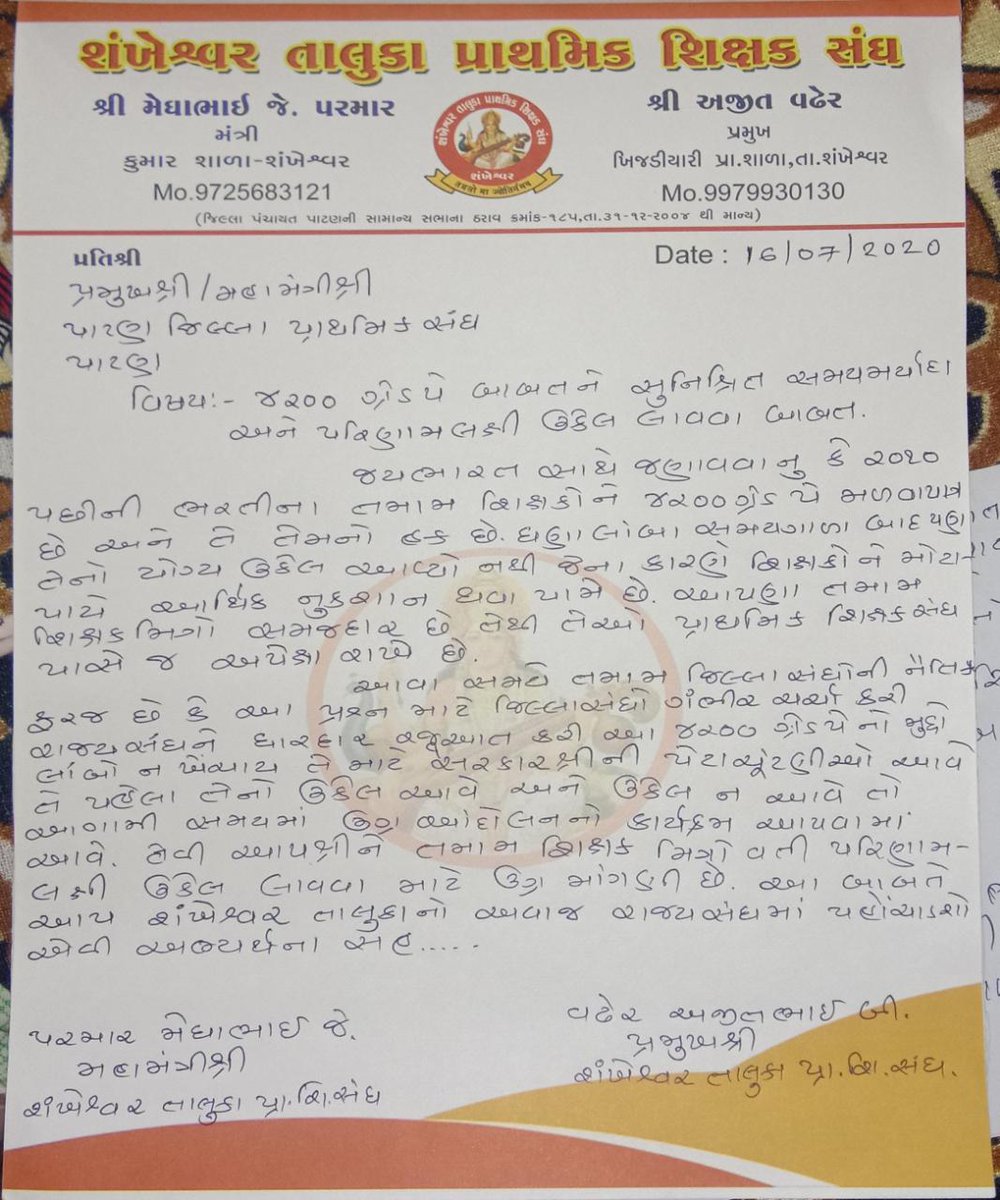 શંખેશ્વર તાલુકા પ્રાથમિક શિક્ષક સંઘ
શ્રી મેઘાભાઈ જે. પરમાર
મંત્રી
કુમાર શાળા-શંખેશ્વર
Mo.9725683121
શંખેશ્વર તાલુકા પ્રાથમિક શિક્ષક સંઘ
શંખેશ્વર
તમસો મા જ્યોતિર્ગમય
શ્રી અજીત વઢેર
પ્રમુખ
ખિજડીયારી પ્રા.શાળા,તા.શંખેશ્વર
Mo.9979930130
(જિલ્લા પંચાયત પાટણની સામાન્ય સભાના ઠરાવ ક્રમાંક-૧૮૫,તા.૩૧-૧૨-૨૦૦૪ થી માન્ય)
પ્રતિશ્રી
Date : 16/07/2020
પ્રમુખશ્રી/મહામંત્રીશ્રી
પાટણ જિલ્લા પ્રાથમિક સંઘ
પાટણ
વિષય:- ૪૨૦૦ ગ્રેડપે બાબતને સુનિશ્રિત સમયમર્યાદા
અને પરિણામલક્ષી ઉકેલ લાવવા બાબત.
જયભારત સાથે જણાવવાનુ કે ૨૦૧૦
પછીની ભરતીના તમામ શિક્ષકોને ૪૨૦૦ગ્રેડ પે મળવાપાત્ર
છે અને તે તેમનો હક છે. ઘણા લાંબા સમયગાળા બાદ પણ
તેનો યોગ્ય ઉકેલ આવ્યો નથી જેના કારણે શિક્ષકોને મોટા-
પાયે આર્થિક નુકશાન થવા પામે છે. આપણા તમામ
શિક્ષક મિત્રો સમજદાર છે તેથી તેઓ પ્રાથમિક શિક્ષક સંઘ
પાસે જ અપેક્ષા રાખે છે.
આવા સમયે તમામ જિલ્લાસંઘોની નૈતિક
ફરજ છે કે આ પ્રશ્ન માટે જિલ્લાસંઘો ગંભીર ચર્ચા કરી
રાજ્યસંઘને ધારદાર રજૂઆત કરી આ ૪૨૦૦ ગ્રેડપે નો મુદ્દો
લાંબો ન ખેંચાય તે માટે સરકારશ્રીની પેટાચૂંટણીઓ આવે
તે પહેલા તેનો ઉકેલ આવે અને ઉકેલ ન આવે તો
આગામી સમયમાં ઉગ્ર આંદોલનનો કાર્યક્રમ આપવામાં
આવે. તેવી આપશ્રીને તમામ શિક્ષક મિત્રો વતી પરિણામ-
લક્ષી ઉકેલ લાવવા માટે ઉગ્ર માંગણી છે. આ બાબતે
આપ શંખેશ્વર તાલુકાનો અવાજ રાજ્યસંઘમાં પહોંચાડશો
એવી અભ્યર્થના સહ.....
પરમાર મેઘાભાઈ જે.
મહામંત્રીશ્રી
શંખેશ્વર તાલુકા પ્રા.શિ.સંઘ
વઢેર અજીતભાઈ બી.
પ્રમુખશ્રી
શંખેશ્વર તાલુકા પ્રા.શિ.સંઘ.